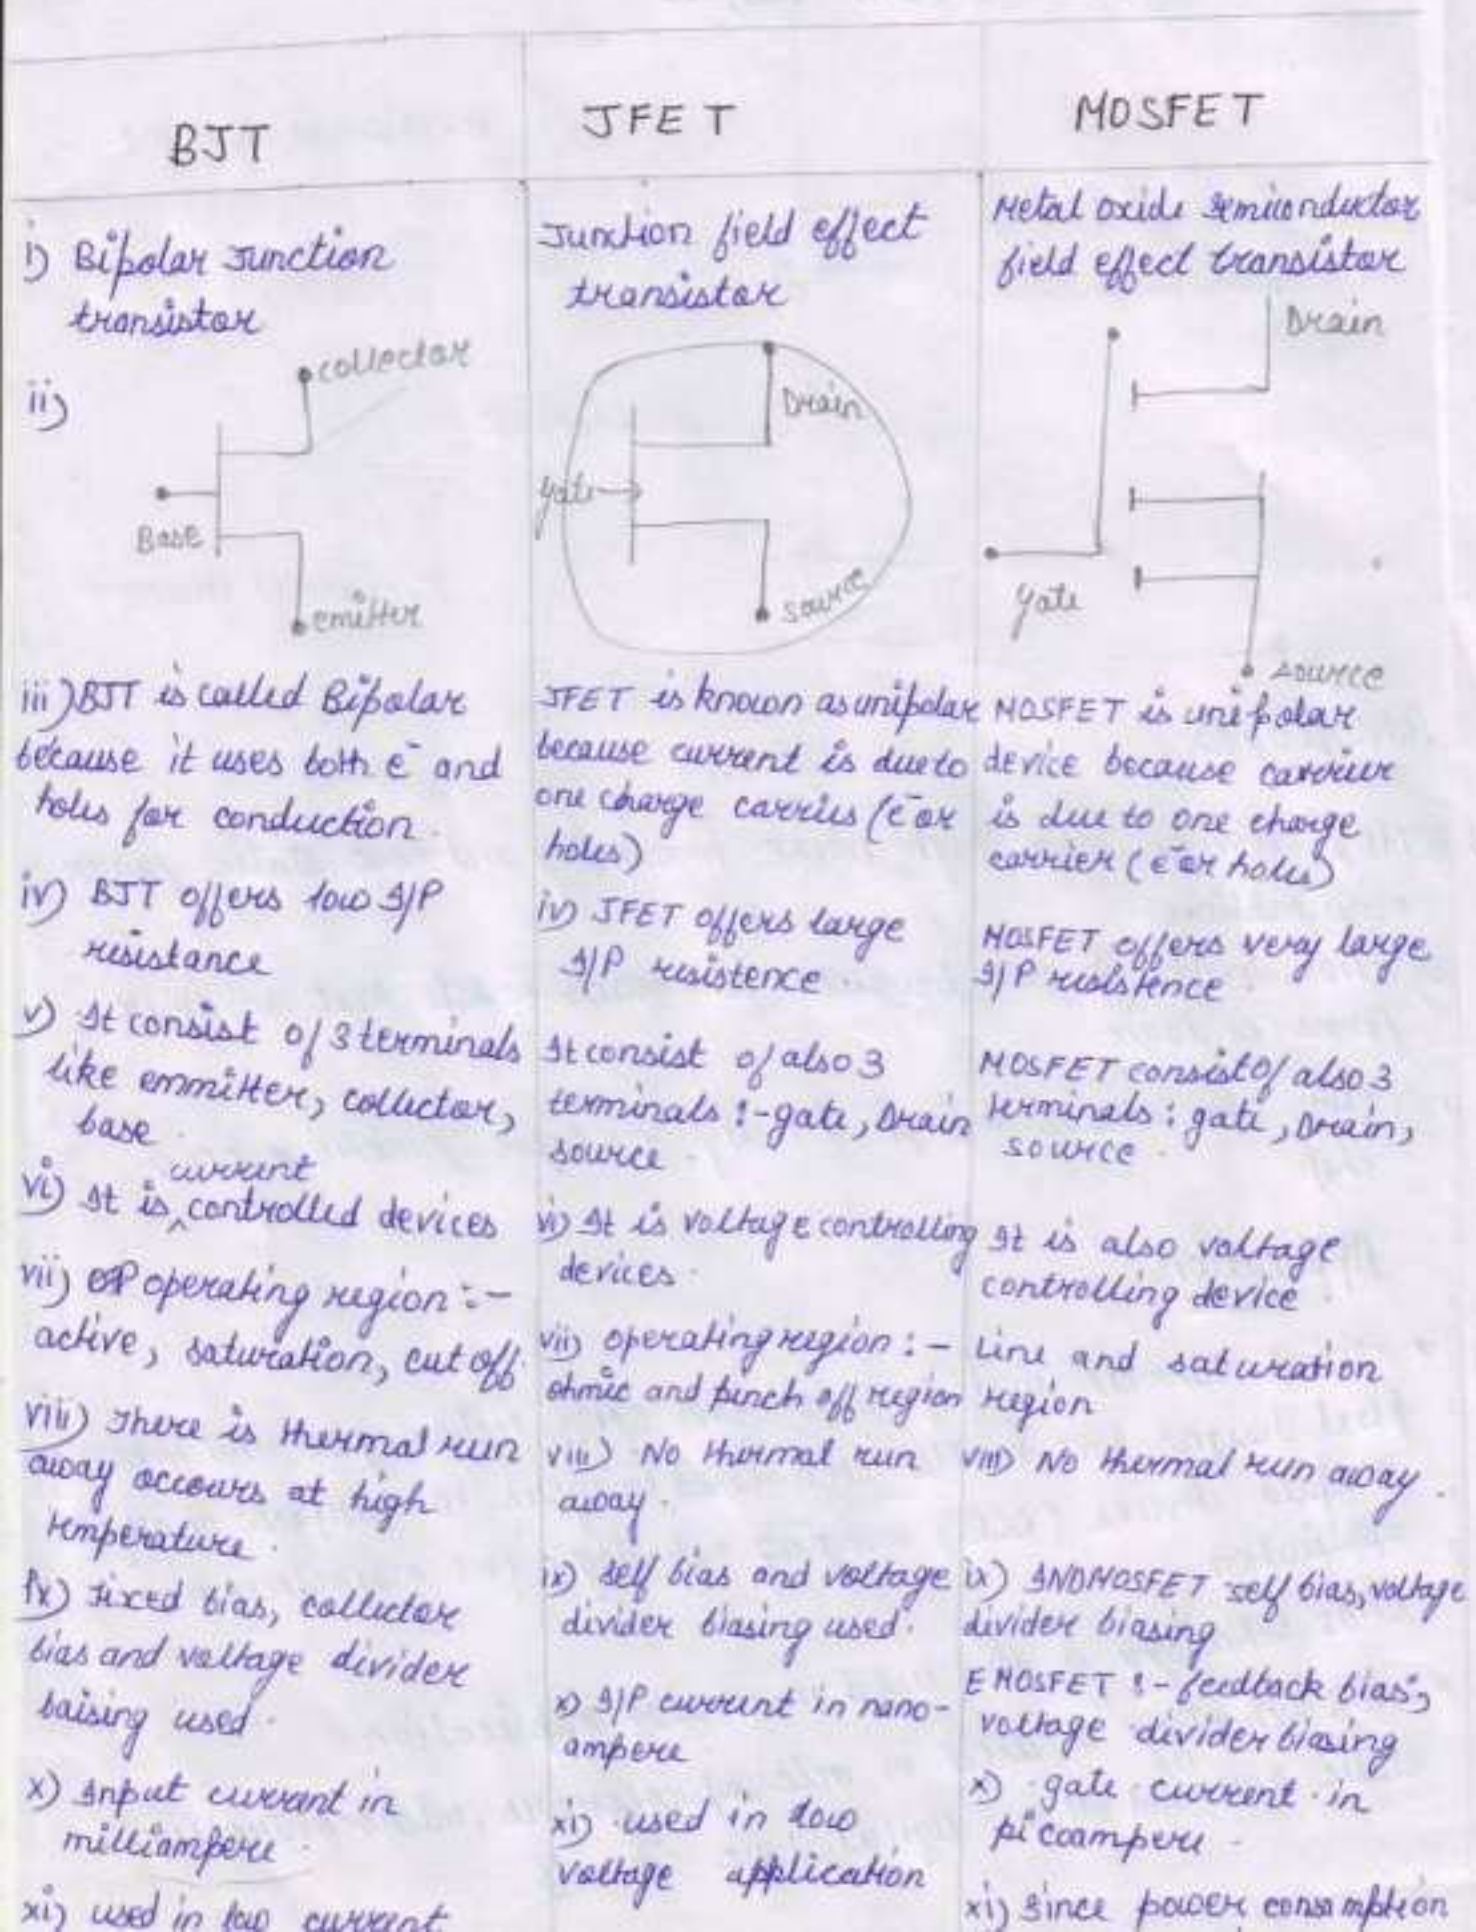 BJT
JFET
MOSFET
i) Bipolar Junction
transistor
ii)
collector
Base
emitter
iii) BJT is called Bipolar
because it uses both e⁻ and
holes for conduction.
iv) BJT offers low I/P
resistance
v) It consist of 3 terminals
like emmitter, collector,
base.
current
vi) It is ^ controlled devices
vii) operating region :-
active, saturation, cut off
viii) There is thermal run
away accours at high
temperature.
ix) Fixed bias, collector
bias and voltage divider
baising used.
x) Input currant in
milliampere.
xi) used in low current
Junction field effect
transistor
Drain
gate
source
JFET is known as unipolar
because current is due to
one charge carries (e⁻ or
holes)
iv) JFET offers large
I/P resistence.
It consist of also 3
terminals :- gate, Drain
source.
vi) It is voltage controlling
devices.
vii) operating region :-
ohmic and pinch off region
viii) No thermal run
away.
ix) self bias and voltage
divider biasing used.
x) I/P current in nano-
ampere
xi) used in low
voltage application
Metal oxide semiconductor
field effect transistor
Drain
gate
source
MOSFET is unipolar
device because carrier
is due to one charge
carrier (e⁻ or holes)
MOSFET offers very large
I/P resistence.
MOSFET consist of also 3
terminals : gate, Drain,
source.
It is also voltage
controlling device.
Line and saturation
region
viii) No thermal run away.
ix) INDMOSFET self bias, voltage
divider biasing
EMOSFET :- feedback bias,
voltage divider biasing
x) gate current in
picoampere.
xi) since power consamption